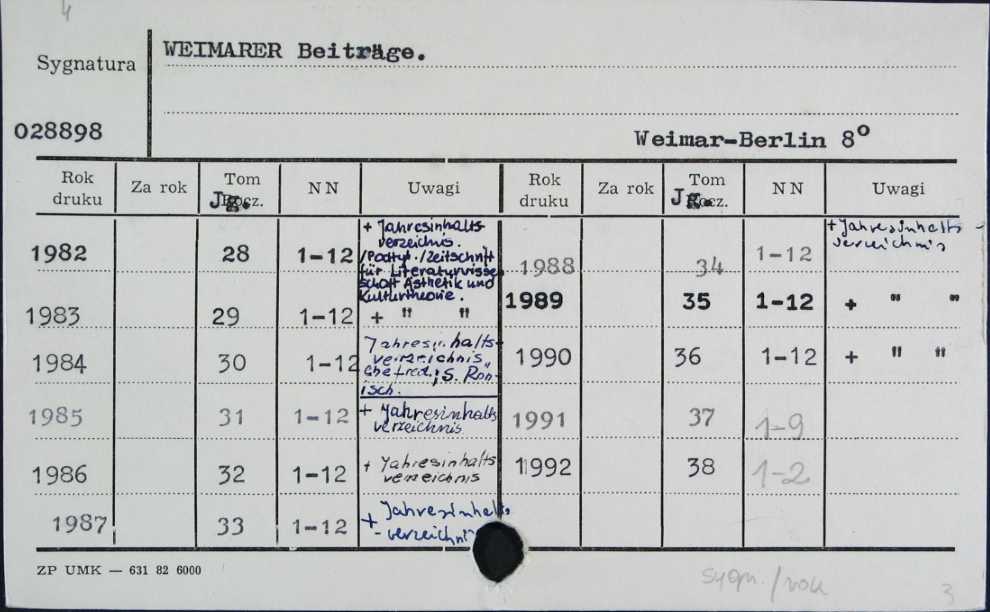 4
WEIMARER Beiträge.
Sygnatura
028898
Weimar-Berlin 8°
Rok druku Za rok Tom Jg. NN Uwagi Rok druku Za rok Tom Jg. NN Uwagi
1982 28 1-12 + Jahresinhalts-
verzeichnis.
für Literaturwisse
schaft Ästhetik und
Kulturtheorie.
1983 29 1-12 + " "
1984 30 1-12 Jahresinhalts-
verzeichnis,
Chefred.: S. Rön-
isch.
1985 31 1-12 + Jahresinhalts
verzeichnis
1986 32 1-12 + Jahresinhalts
verzeichnis
1987 33 1-12 + Jahresinhalts
- verzeichni
1988 34 1-12 + Jahresinhalts-
verzeichnis
1989 35 1-12 + " "
1990 36 1-12 + " "
1991 37 1-9
1992 38 1-2
ZP UMK — 631 82 6000
sygn./rok
3